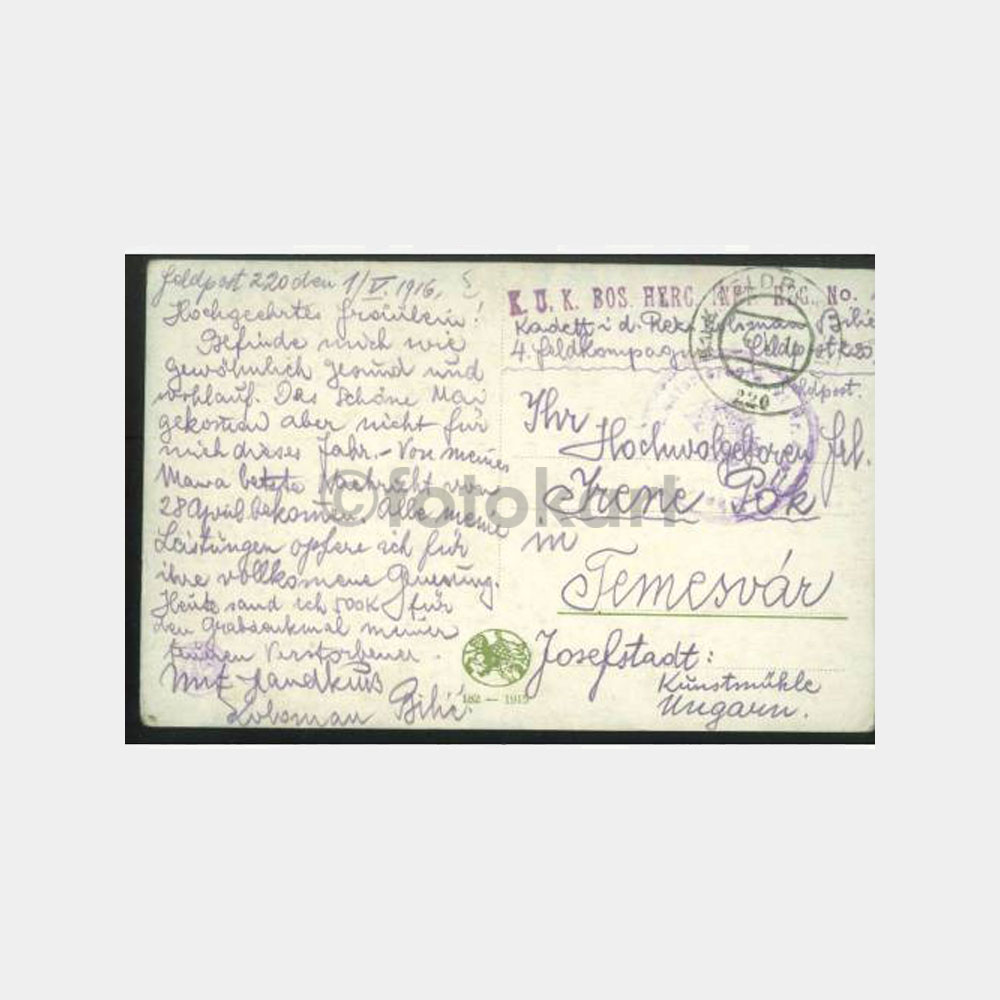 Feldpost 220 den 1/V. 1916.
Hochgeehrtes Fräulein!
Befinde mich wie
gewöhnlich gesund und
wohlauf. Das Schöne Mai
gekomen aber nicht für
mich dieses Jahr. – Von meines
Mama letzte Nachricht vom
28 April bekomen. Alle meine
Leistungen opfere ich für
ihre vollkomene Genesung.
Heute sand ich 500K für
den Grabdenkmal meiner
teueren Verstorbener.
Mit Handkuss
Bilić.
K. U. K. BOS. HERC. INFT. REG. No.
Kadett i. d. Res. Bilić
4. Feldkompagnie Feldpost 220
FELDP
220
Feldpost.
Ihr
Hochwolgeboren Frl.
Irene Pök
in
Temesvár
Josefstadt:
Kunstmühle
Ungarn.
182 — 1915
©fotokart